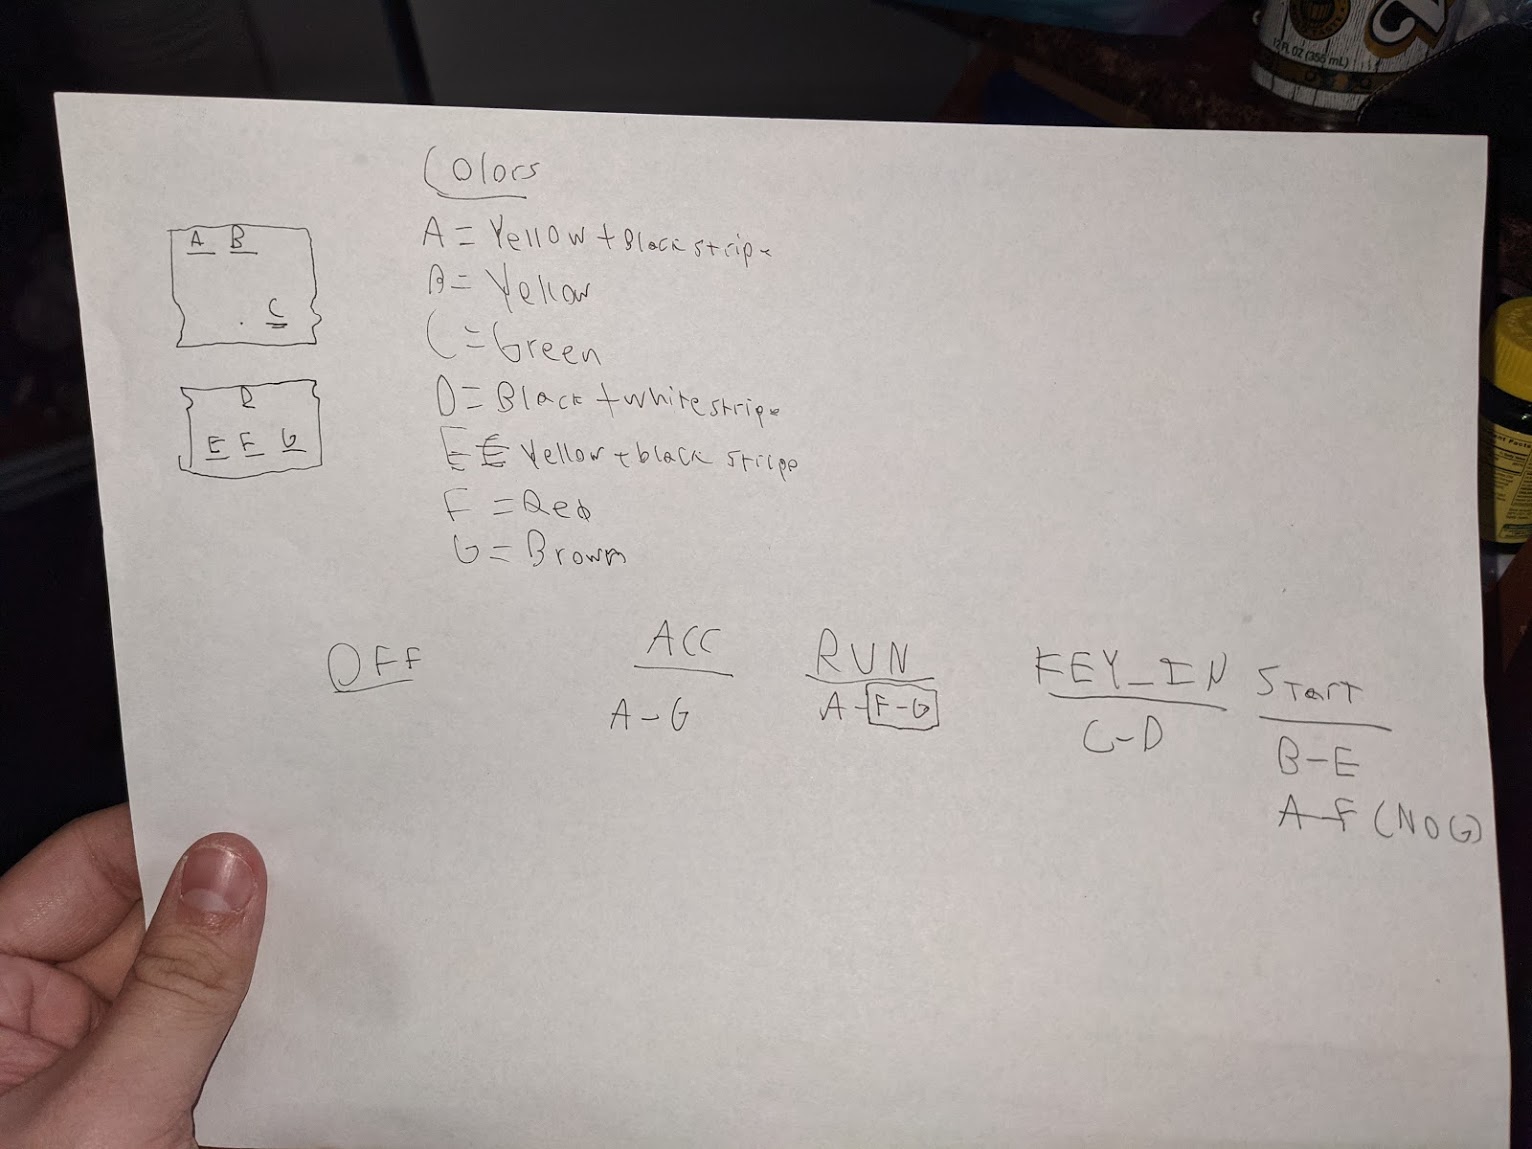 Colors
A B
C
D
E F G
A = Yellow + Black stripe
B = Yellow
C = Green
D = Black + white stripe
E E Yellow + black stripe
F = Red
G = Brown
OFF
ACC
A - G
RUN
A - F - G
KEY_IN
C - D
START
B - E
A - F (NO G)
12 FL OZ (355 mL)